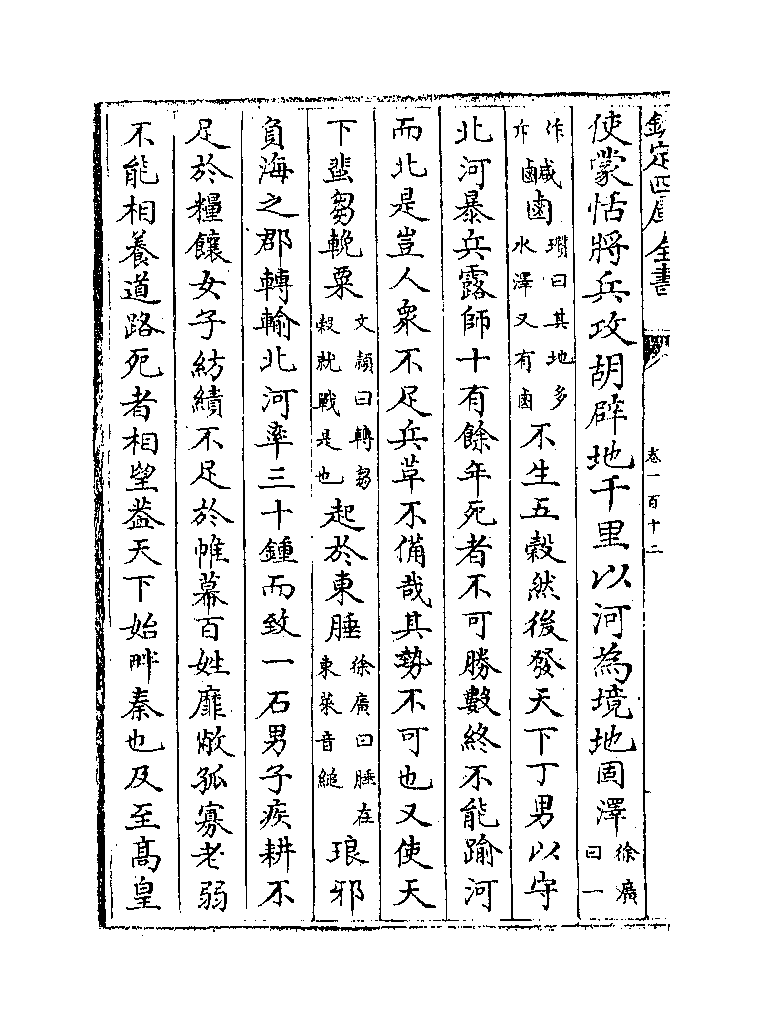 欽定四庫全書
卷一百十二
使蒙恬將兵攻胡辟地千里以河為境地固澤徐廣曰一
作鹹斥鹵鹵瓚曰其地多水澤又有鹵不生五穀然後發天下丁男以守
北河暴兵露師十有餘年死者不可勝數終不能踰河
而北是豈人衆不足兵草不備哉其勢不可也又使天
下蜚芻輓粟文穎曰轉芻穀就戰是也起於東腄徐廣曰腄在東萊音縋琅邪
負海之郡轉輸北河率三十鍾而致一石男子疾耕不
足於糧饟女子紡績不足於帷幕百姓靡敝孤寡老弱
不能相養道路死者相望葢天下始畔秦也及至髙皇